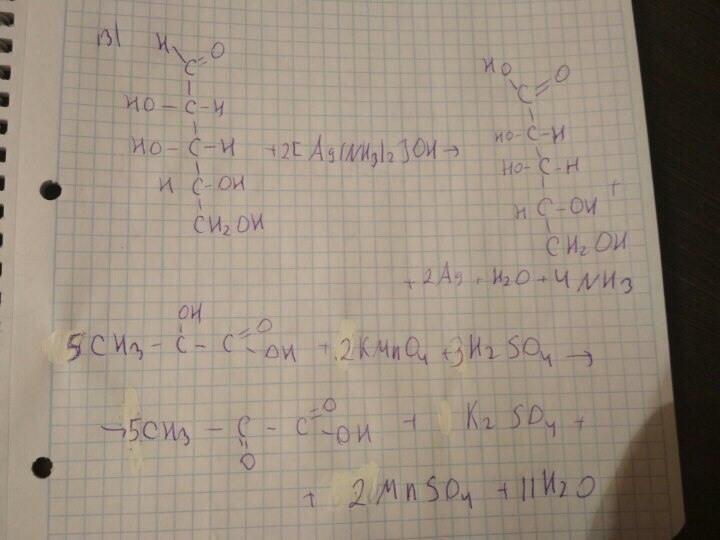 в)
H O
C
HO - C - H
HO - C - H + 2[Ag(NH3)2]OH →
H C - OH
CH2OH
HO O
C
HO - C - H
HO - C - H
H C - OH +
CH2OH
+ 2Ag + H2O + 4NH3
OH
5CH3 - C - C = O - OH + 2KMnO4 + 3H2SO4 →
→ 5CH3 - C - C = O - OH + K2SO4 +
O
+ 2MnSO4 + 11H2O